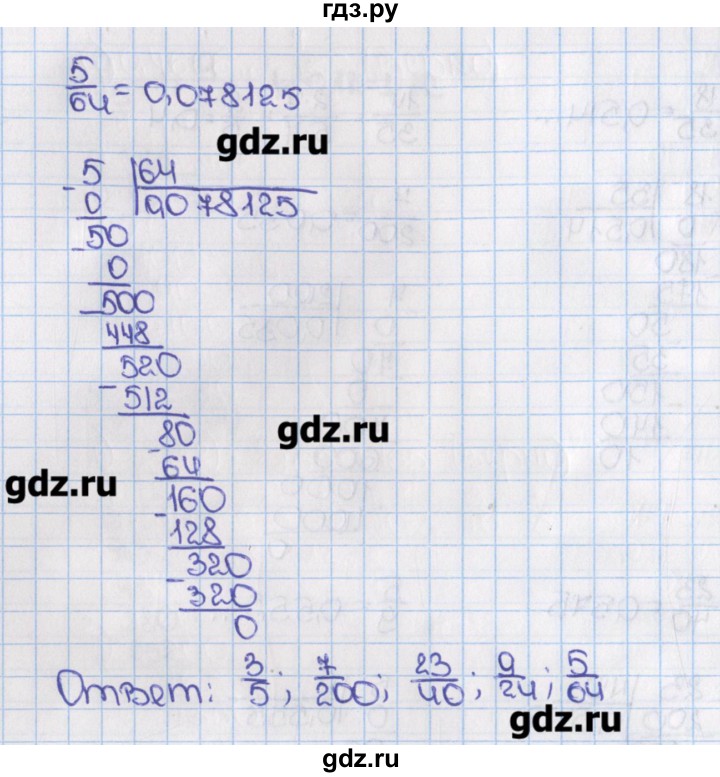 гдз.ру
5/64 = 0,078125
gdz.ru
5 | 64
0 | 0,078125
50
0
500
448
520
512
80
gdz.ru
64
gdz.ru
160
128
320
320
0
Ответ: 3/5; 7/200; 23/40; 9/24; 5/64
gdz.ru
gdz.ru